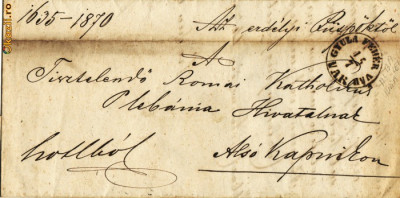 1635-1870 Az erdélyi Püspöktől
GYULA FEHÉRVÁR
A
Tisztelendő Romai Katholikus
Plebánia Hivatalnak
Alsó Kapnikon